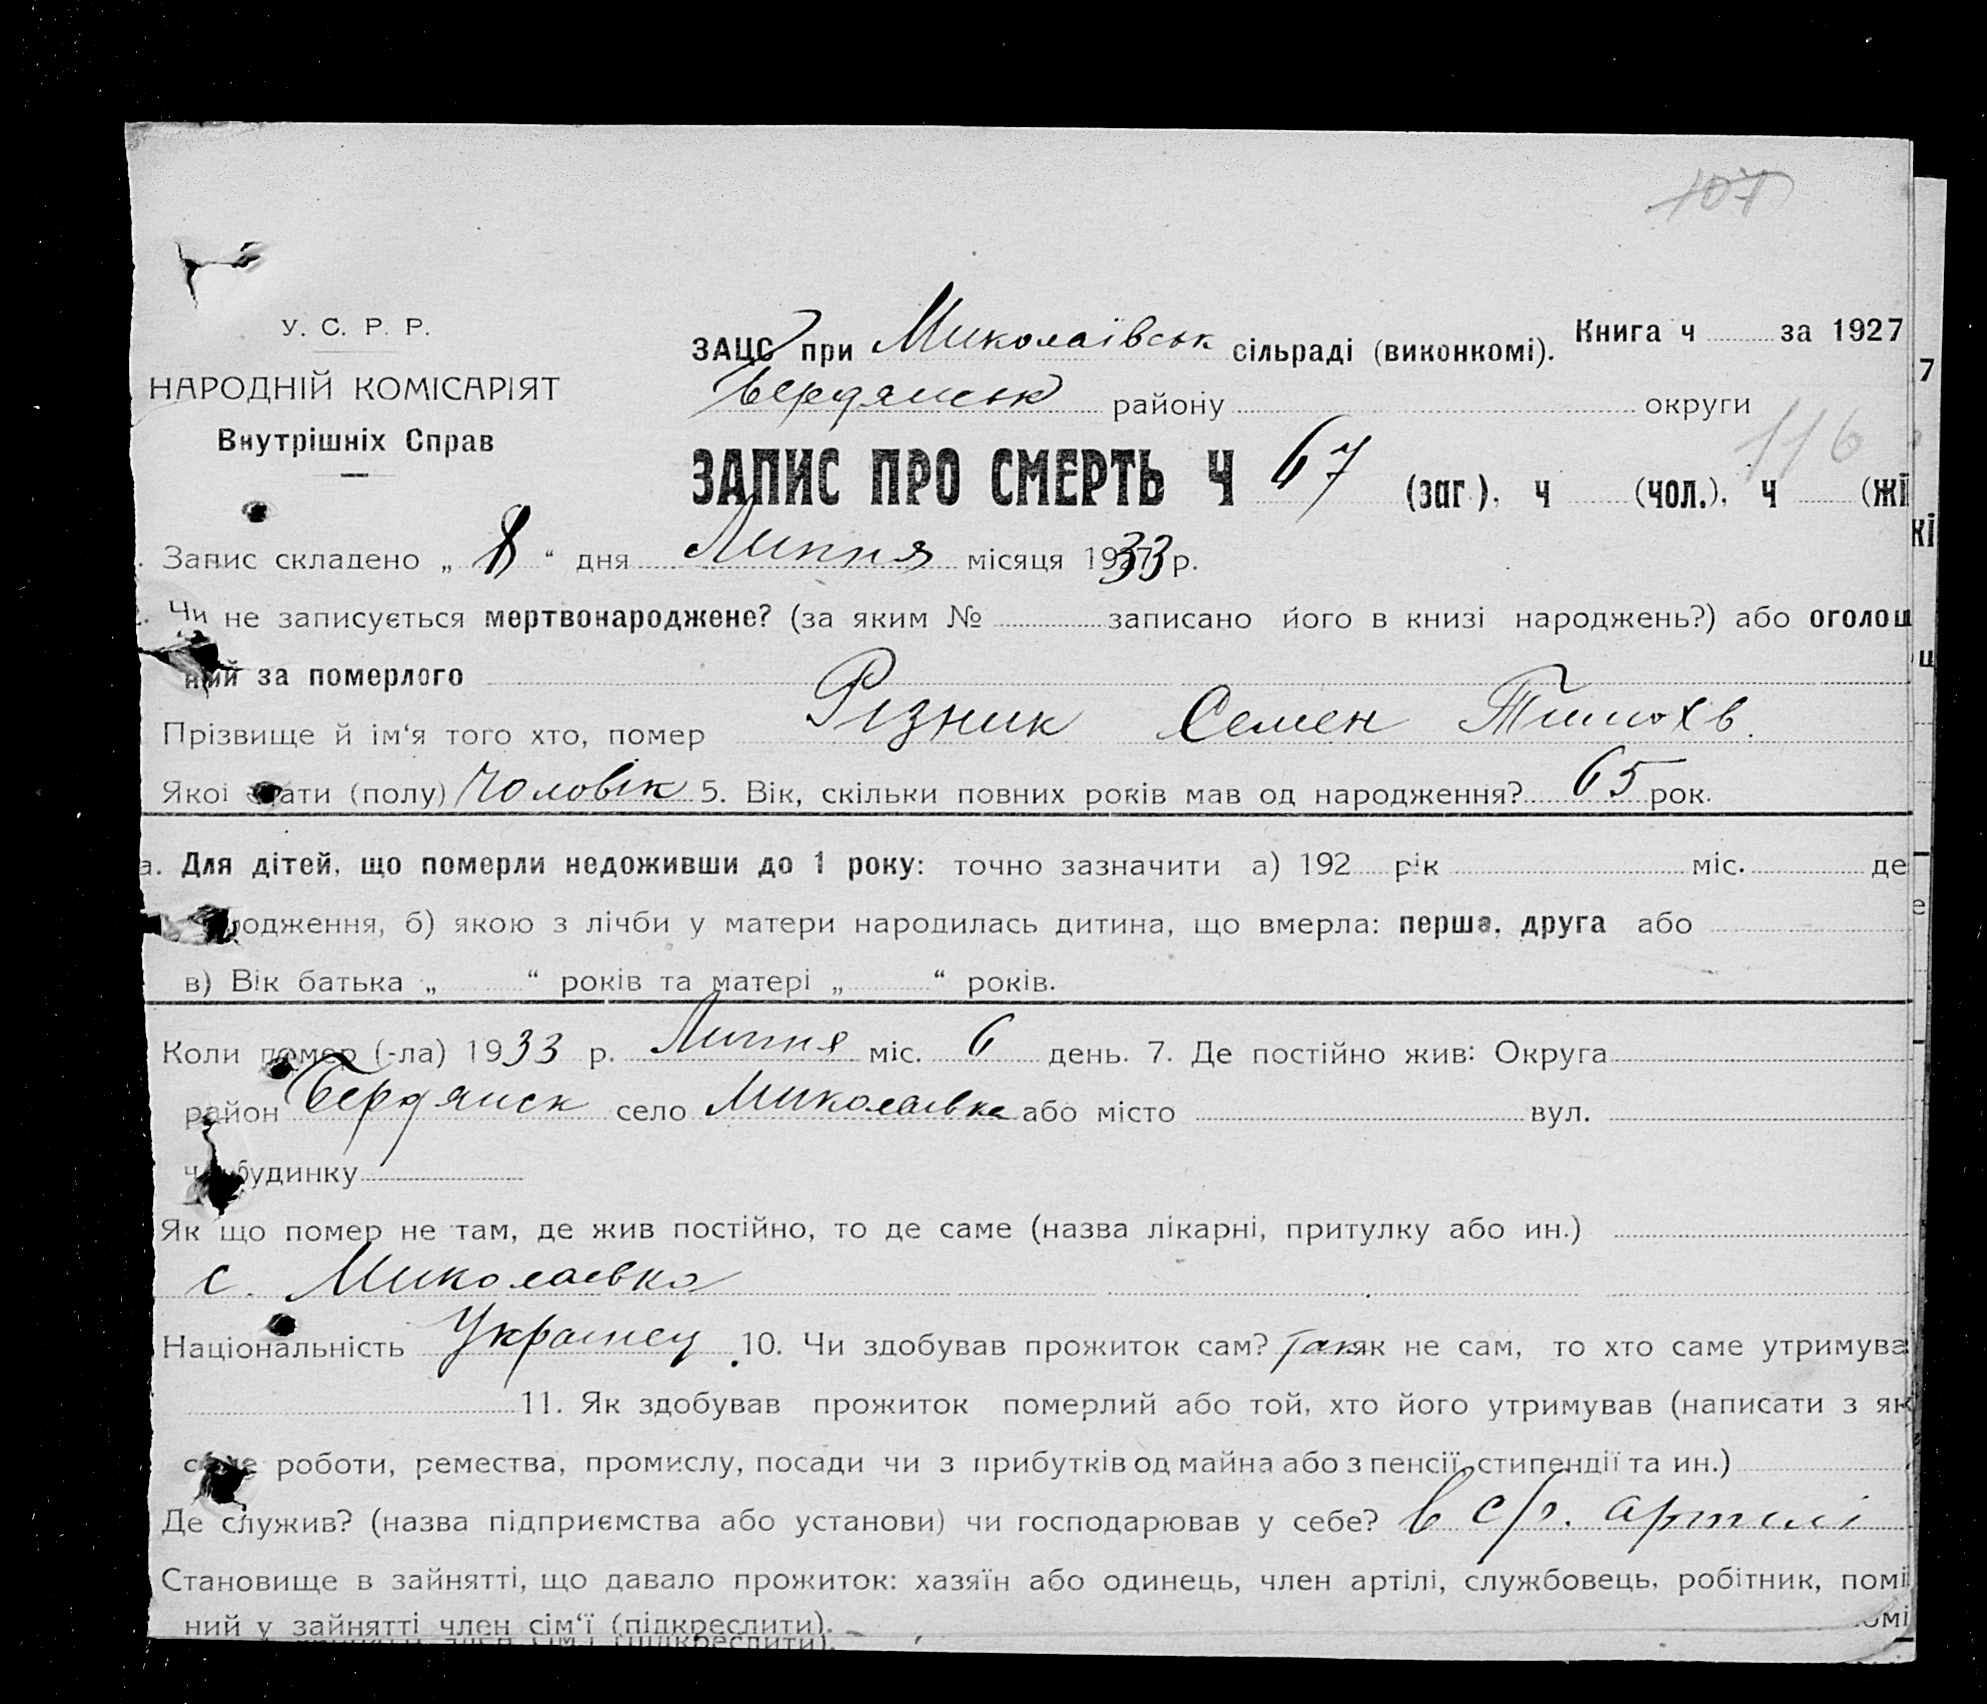 107
У. С. Р. Р.
НАРОДНІЙ КОМІСАРІЯТ
Внутрішніх Справ
ЗАЦС при Миколаївськ сільраді (виконкомі). Книга ч за 1927
Бердянськ району округи
116
ЗАПИС ПРО СМЕРТЬ Ч 67 (заг.), ч (чол.), ч (жі
Запис складено „ 8 “ дня Липня місяця 1933 р.
Чи не записується мертвонароджене? (за яким № записано його в книзі народжень?) або оголош
ний за померлого
Прізвище й ім‘я того хто, помер Різник Семен Тимохв.
Якоі стати (полу) Чоловік 5. Вік, скільки повних років мав од народження? 65 рок.
а. Для дітей, що померли недоживши до 1 року: точно зазначити а) 192 рік міс. де
родження, б) якою з лічби у матери народилась дитина, що вмерла: перша, друга або
в) Вік батька „ “ років та матері „ “ років.
Коли помер (-ла) 1933 р. Липня міс. 6 день. 7. Де постійно жив: Округа
район Бердянск село Миколаевка або місто вул.
ч. будинку
Як що помер не там, де жив постійно, то де саме (назва лікарні, притулку або ин.)
с. Миколаевка
Національність Украінец 10. Чи здобував прожиток сам? так як не сам, то хто саме утримува
11. Як здобував прожиток померлий або той, хто його утримував (написати з як
саме роботи, ремества, промислу, посади чи з прибутків од майна або з пенсії, стипендії та ин.)
Де служив? (назва підприємства або установи) чи господарював у себе? в с/г. артилі
Становище в зайнятті, що давало прожиток: хазяїн або одинець, член артілі, службовець, робітник, помі
ний у зайнятті член сім‘ї (підкреслити).